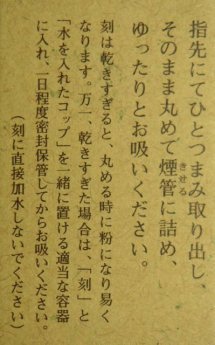 指先にてひとつまみ取り出し、
そのまま丸めて煙管に詰め、
きせる
ゆったりとお吸いください。
刻は乾きすぎると 丸める時に粉になり易く
なります。万一、乾きすぎた場合は、「刻」と
「水を入れたコップ」を一緒に置ける適当な容器
に入れ、一日程度密封保管してからお吸いください。
(刻に直接加水しないでください)